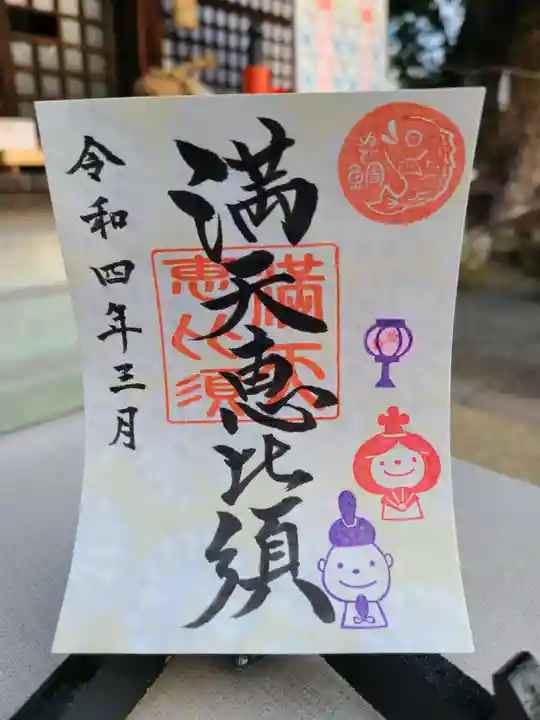 満天恵比須
令和四年三月
満天
恵比須